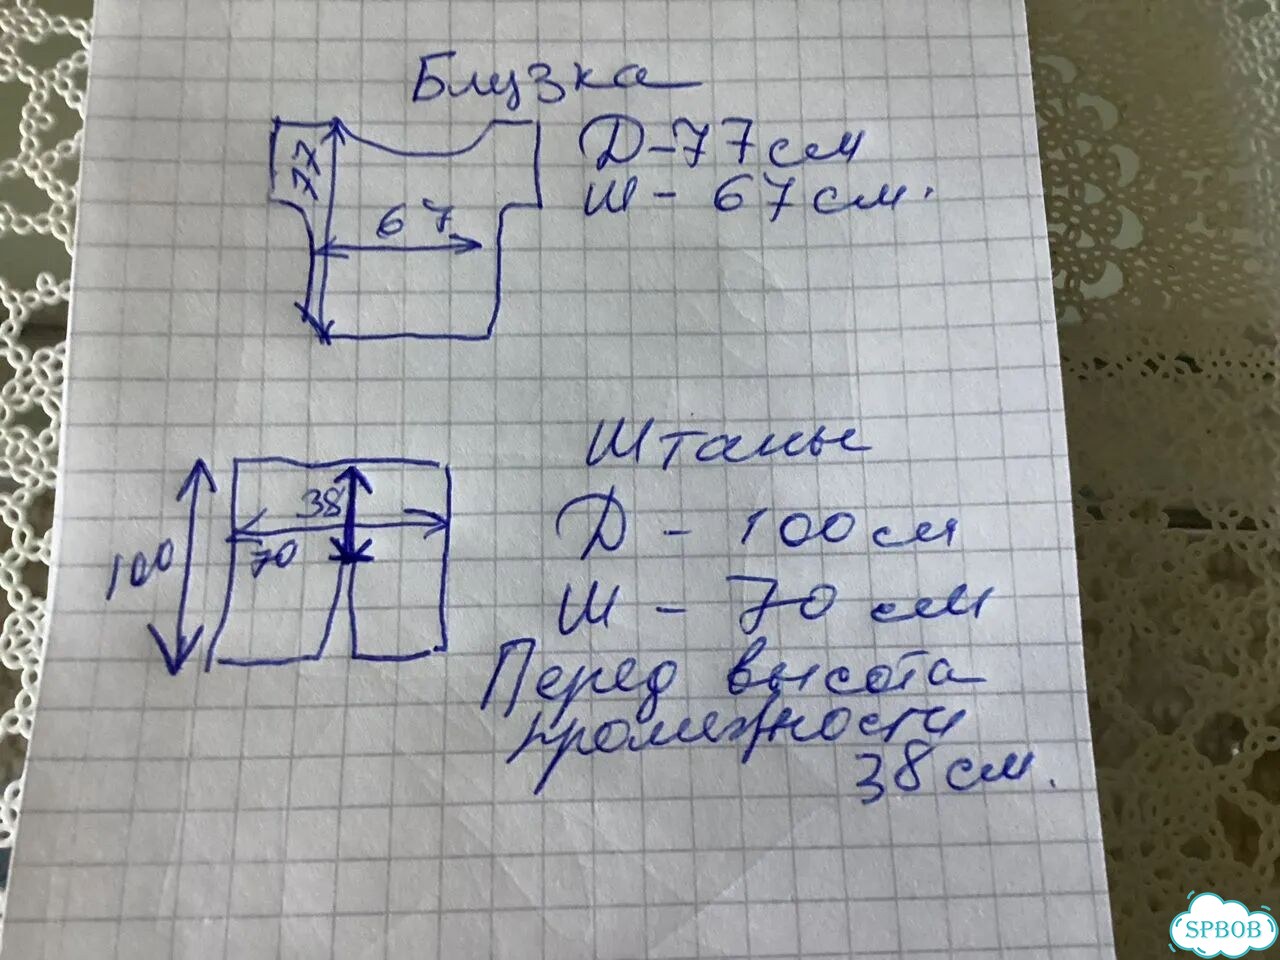 Блузка
Д-77см
Ш - 67см.
77
67
Штаны
Д - 100см
Ш - 70 см
Перед высота
промежности
38см.
38
70
100
SPBOB